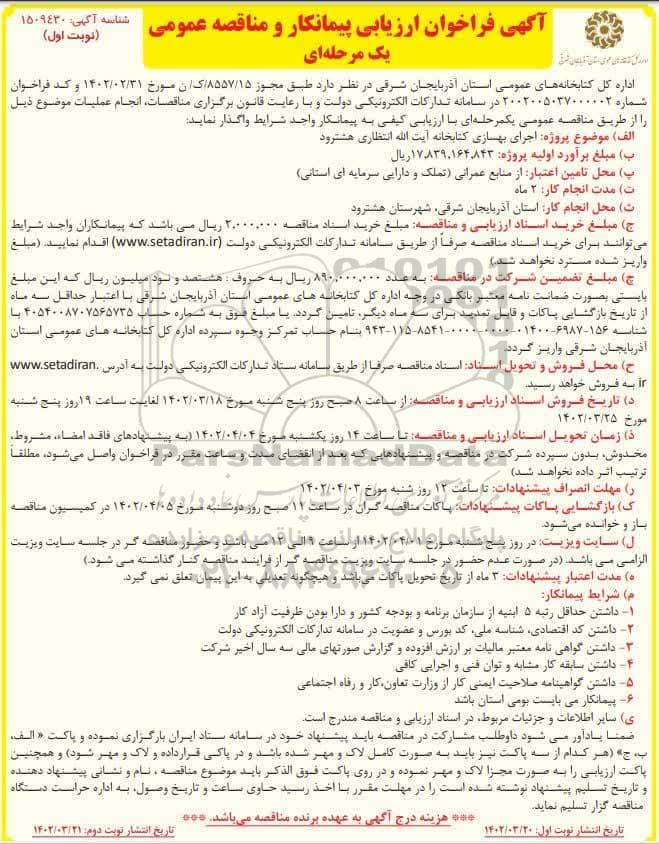 شناسه آگهی: ۱۵۰۹۴۳۰
(نوبت اول)
آگهی فراخوان ارزیابی پیمانکار و مناقصه عمومی
یک مرحله‌ای
اداره کل کتابخانه‌های عمومی استان آذربایجان شرقی در نظر دارد طبق مجوز ۸۵۵۷/۱۵/ک/ ن مورخ ۱۴۰۲/۰۲/۳۱ و کد فراخوان
شماره ۲۰۰۲۰۰۵۰۳۷۰۰۰۰۰۲ در سامانه تدارکات الکترونیکی دولت و با رعایت قانون برگزاری مناقصات، انجام عملیات موضوع ذیل
را از طریق مناقصه عمومی یکمرحله‌ای با ارزیابی کیفی به پیمانکار واجد شرایط واگذار نماید:
الف) موضوع پروژه: اجرای بهسازی کتابخانه آیت الله انتظاری هشترود
ب) مبلغ برآورد اولیه پروژه: ۱۷,۸۳۹,۱۶۴,۸۴۳ریال
پ) محل تامین اعتبار: از منابع عمرانی (تملک و دارایی سرمایه ای استانی)
ت) مدت انجام کار: ۲ ماه
ث) محل انجام کار: استان آذربایجان شرقی، شهرستان هشترود
ج) مبلغ خرید اسناد ارزیابی و مناقصه: مبلغ خرید اسناد مناقصه ۲,۰۰۰,۰۰۰ ریال می باشد که پیمانکاران واجد شرایط
می‌توانند برای خرید اسناد مناقصه صرفاً از طریق سامانه تدارکات الکترونیکی دولت (www.setadiran.ir) اقدام نمایید. (مبلغ
واریز شده مسترد نخواهد شد.)
چ) مبلغ تضمین شرکت در مناقصه: به عدد ۸۹۰,۰۰۰,۰۰۰ ریال به حروف : هشتصد و نود میلیون ریال که این مبلغ
بایستی بصورت ضمانت نامه معتبر بانکی در وجه اداره کل کتابخانه های عمومی استان آذربایجان شرقی با اعتبار حداقل سه ماه
از تاریخ بازگشایی پاکات و قابل تمدید برای سه ماه دیگر، تامین گردد. یا مبلغ فوق به شماره حساب ۴۰۵۴۰۰۸۷۰۷۵۶۵۷۳۵ با
شناسه ۱۵۶-۶۹۸۷-۰۱۴۰۰-۰۰۰۰-۰۰۰۰-۸۵۴۱-۱۱۵-۹۴۳ بنام حساب تمرکز وجوه سپرده اداره کل کتابخانه های عمومی استان
آذربایجان شرقی واریز گردد.
ح) محل فروش و تحویل اسناد: اسناد مناقصه صرفا از طریق سامانه ستاد تدارکات الکترونیکی دولت به آدرس www.setadiran.
ir به فروش خواهد رسید.
د) تاریخ فروش اسناد ارزیابی و مناقصه: از ساعت ۸ صبح روز پنج شنبه مورخ ۱۴۰۲/۰۳/۱۸ لغایت ساعت ۱۹روز پنج شنبه
مورخ ۱۴۰۲/۰۳/۲۵
ذ) زمان تحویل اسناد ارزیابی و مناقصه: تا ساعت ۱۴ روز یکشنبه مورخ ۱۴۰۲/۰۴/۰۴ (به پیشنهادهای فاقد امضاء، مشروط،
مخدوش، بدون سپرده شرکت در مناقصه و پیشنهادهایی که بعد از انقضای مدت و ساعت مقرر در فراخوان واصل می‌شود، مطلقاً
ترتیب اثر داده نخواهد شد)
ر) مهلت انصراف پیشنهادات: تا ساعت ۱۲ روز شنبه مورخ ۱۴۰۲/۰۴/۰۳
ک) بازگشایی پاکات پیشنهادات: پاکات مناقصه گران در ساعت ۱۱ صبح روز دوشنبه مورخ ۱۴۰۲/۰۴/۰۵ در کمیسیون مناقصه
باز و خوانده می‌شود.
ل) سایت ویزیت: در روز پنج شنبه مورخ ۱۴۰۲/۰۴/۰۱از ساعت ۹ الی ۱۳ می باشد و حضور مناقصه گر در جلسه سایت ویزیت
الزامی می باشد. (در صورت عدم حضور در جلسه سایت ویزیت مناقصه گر از فرایند مناقصه کنار گذاشته می شود.)
ه) مدت اعتبار پیشنهادات: ۳ ماه از تاریخ تحویل پاکات می‌باشد و هیچگونه تعدیلی به این پیمان تعلق نمی گیرد.
م) شرایط پیمانکار:
۱- داشتن حداقل رتبه ۵ ابنیه از سازمان برنامه و بودجه کشور و دارا بودن ظرفیت آزاد کار
۲- داشتن کد اقتصادی، شناسه ملی، کد بورس و عضویت در سامانه تدارکات الکترونیکی دولت
۳- داشتن گواهی نامه معتبر مالیات بر ارزش افزوده و گزارش صورتهای مالی سه سال اخیر شرکت
۴- داشتن سابقه کار مشابه و توان فنی و اجرایی کافی
۵- داشتن گواهینامه صلاحیت ایمنی کار از وزارت تعاون،کار و رفاه اجتماعی
۶- پیمانکار می بایست بومی استان باشد
ی) سایر اطلاعات و جزئیات مربوط، در اسناد ارزیابی و مناقصه مندرج است.
ضمنا یادآور می شود داوطلب مشارکت در مناقصه باید پیشنهاد خود در سامانه ستاد ایران بارگزاری نموده و پاکت « الف،
ب، ج» (هر کدام از سه پاکت نیز باید به صورت کامل لاک و مهر شده باشد و در پاکتی قرارداده و لاک و مهر شود) و همچنین
پاکت ارزیابی را به صورت مجزا لاک و مهر نموده و در روی پاکت فوق الذکر باید موضوع مناقصه ، نام و نشانی پیشنهاد دهنده
و تاریخ تسلیم پیشنهاد نوشته شده است را در مهلت مقرر با اخذ رسید حاوی ساعت و تاریخ وصول، به اداره حراست دستگاه
مناقصه گزار تسلیم نماید.
*** هزینه درج آگهی به عهده برنده مناقصه می‌باشد. ***
تاریخ انتشار نوبت اول: ۱۴۰۲/۰۳/۲۰
تاریخ انتشار نوبت دوم: ۱۴۰۲/۰۳/۲۱
ParsNamadData